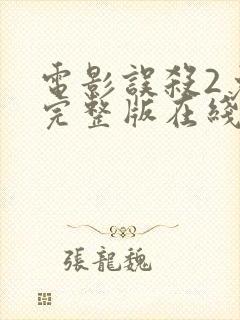 電影誤殺2
完整版在綫
張龍魏